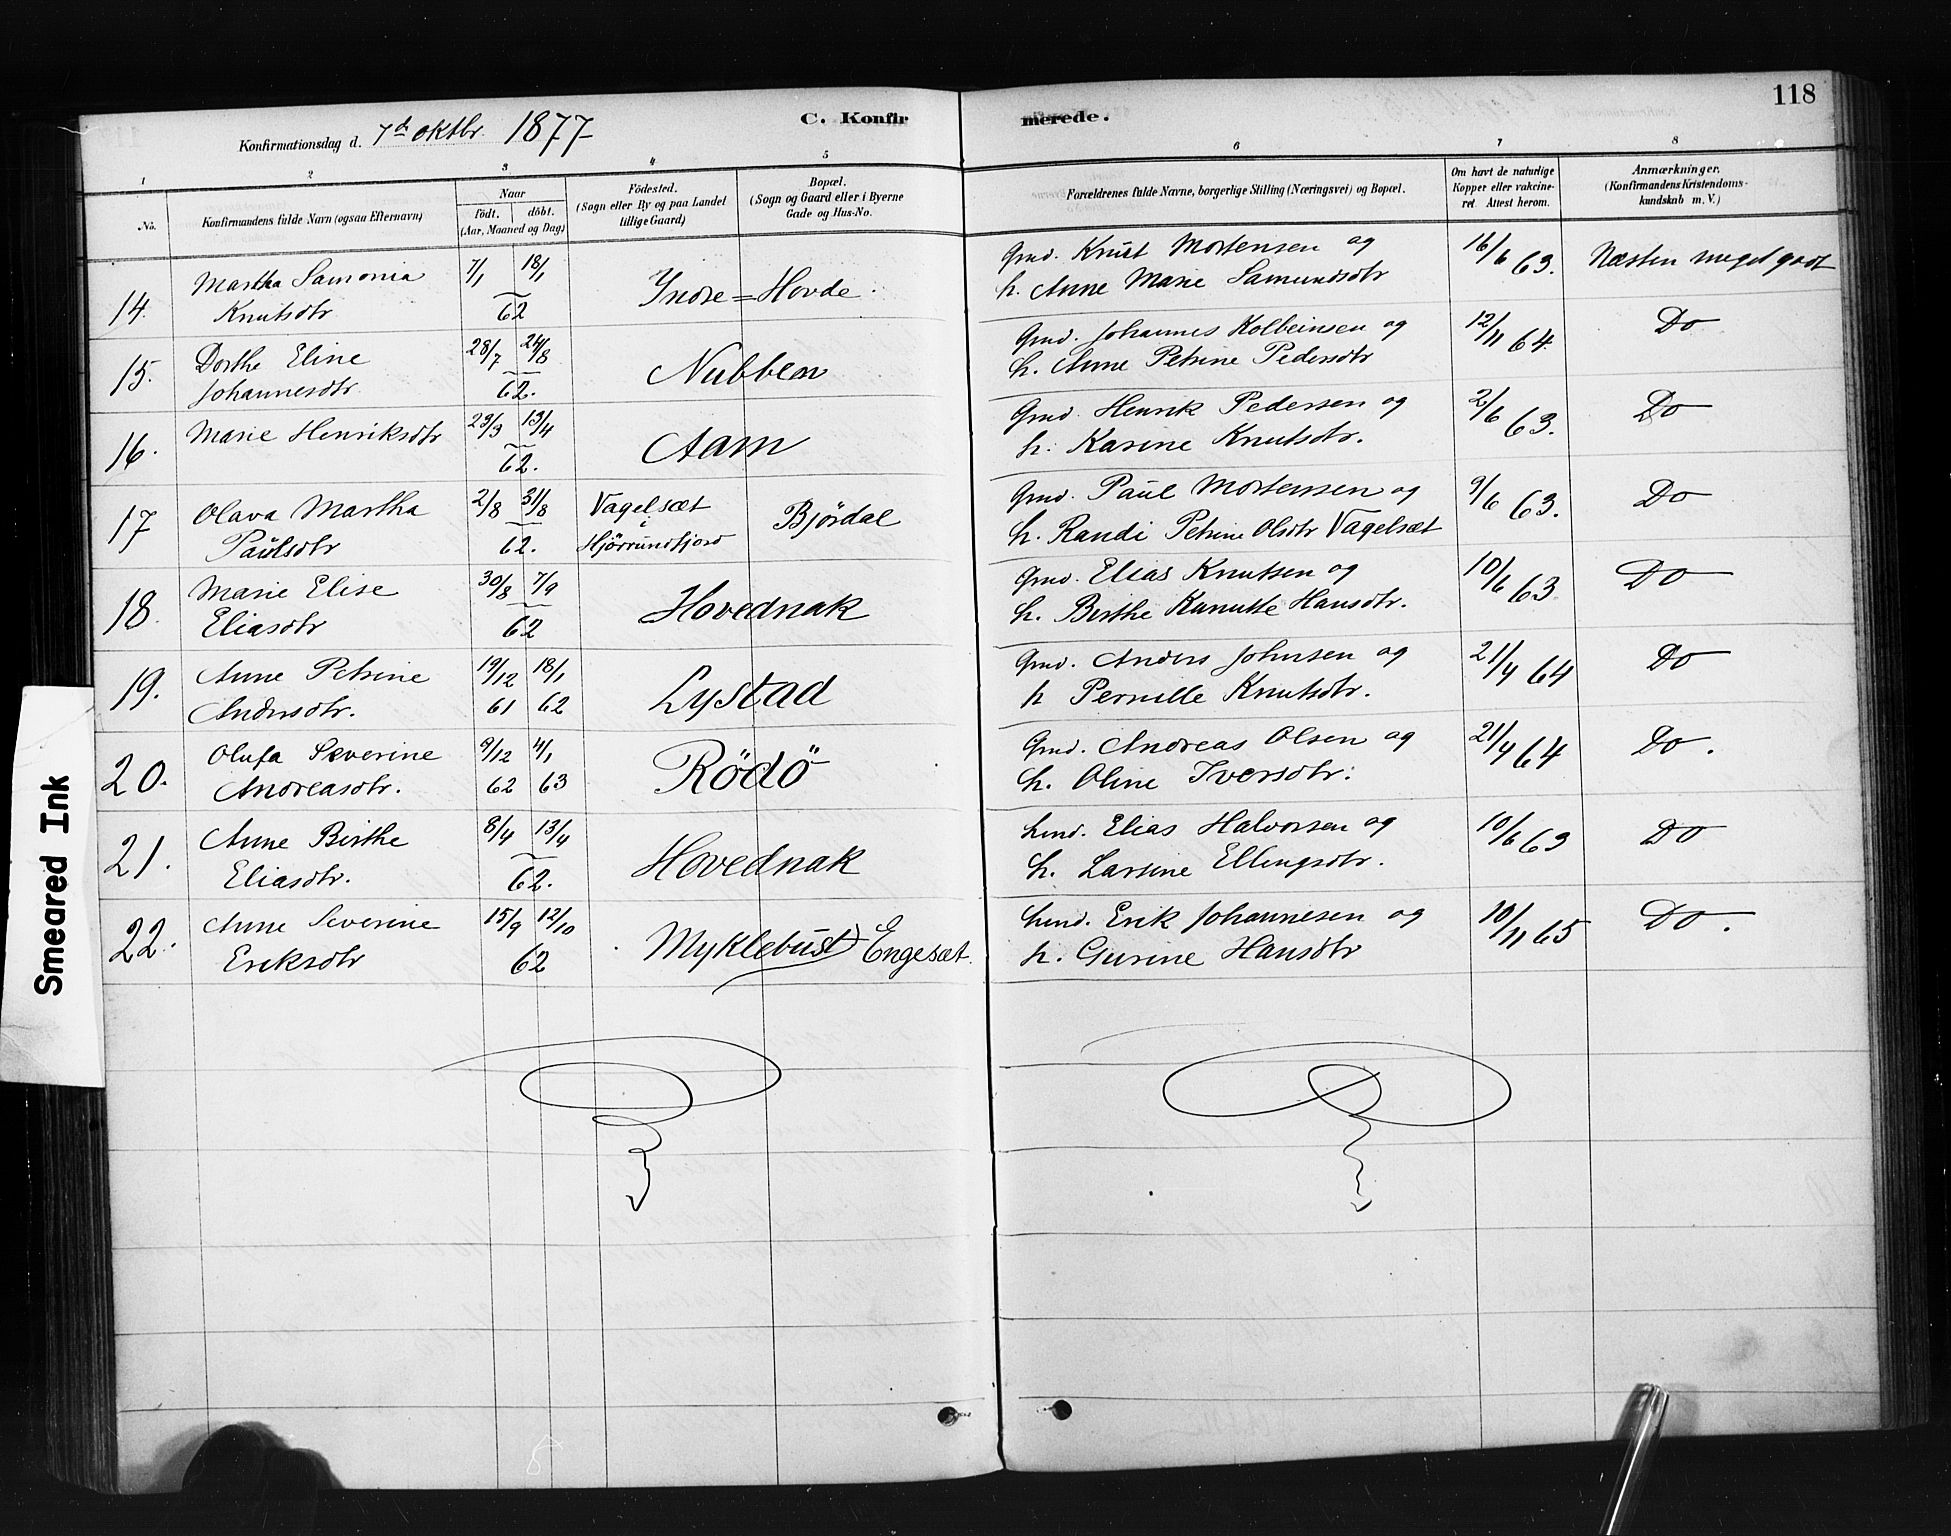 118
Konfirmationsdag d. 7de oktbr. 1877
C. Konfirmerede.
1 2 3 4 5 6 7 8
No.
Konfirmandens fulde Navn (ogsaa Efternavn)
Naar
födt. döbt.
(Aar, Maaned og Dag)
Födested.
(Sogn eller By og paa Landet
tillige Gaard)
Bopæl.
(Sogn og Gaard eller i Byerne
Gade og Hus-No.
Forældrenes fulde Navne, borgerlige Stilling (Næringsvei) og Bopæl.
Om havt de naturlige
Kopper eller vakcine-
ret. Attest herom.
Anmærkninger.
(Konfirmandens Kristendoms-
kundskab m. V.)
14. Martha Samonia 7/1 18/1 Yndre = Hovde. Gmd. Knut Mortensen og 16/6 63. Næsten meget godt
Knutsdtr 62 h. Anne Marie Samundsdtr
15. Dorthe Eline 28/7 24/8 Nubben Gmd. Johannes Kolbeinsen og 12/11 64. Do
Johannesdtr 62. h. Anne Petrine Pedersdtr
16. Marie Henriksdtr 23/3 13/4 Aam Gmd. Henrik Pedersen og 2/6 63. Do
62. h. Karine Knutsdtr.
17 Olava Martha 2/8 31/8 Vagelsæt i Björdal Gmd. Paul Mortensen og 9/6 63. Do
Paulsdtr 62. Hjörrundfjord h. Randi Petrine Olsdtr Vagelsæt
18. Marie Elise 30/8 7/9 Hovednak Gmd. Elias Knutsen og 10/6 63 Do
Eliasdtr 62 h. Birthe Kanutte Hansdtr.
19. Anne Petrine 19/12 18/1 Lystad Gmd. Anders Johnsen og 21/4 64 Do
Andersdtr. 61 62 h Pernille Knutsdtr.
20. Olufa Severine 9/12 4/1 Rödö Gmd. Andreas Olsen og 21/4 64 Do.
Andreasdtr. 62 63 h. Oline Iversdtr.
21. Anne Birthe 8/4 13/4 Hovednak hmd. Elias Halvorsen og 10/6 63 Do
Eliasdtr. 62. h. Larsine Ellingsdtr.
22. Anne Severine 15/9 12/10 Myklebust) Engesæt hmd. Erik Johannesen og 10/11 65 Do.
Eriksdtr 62 h. Gurine Hansdtr
Smeared Ink